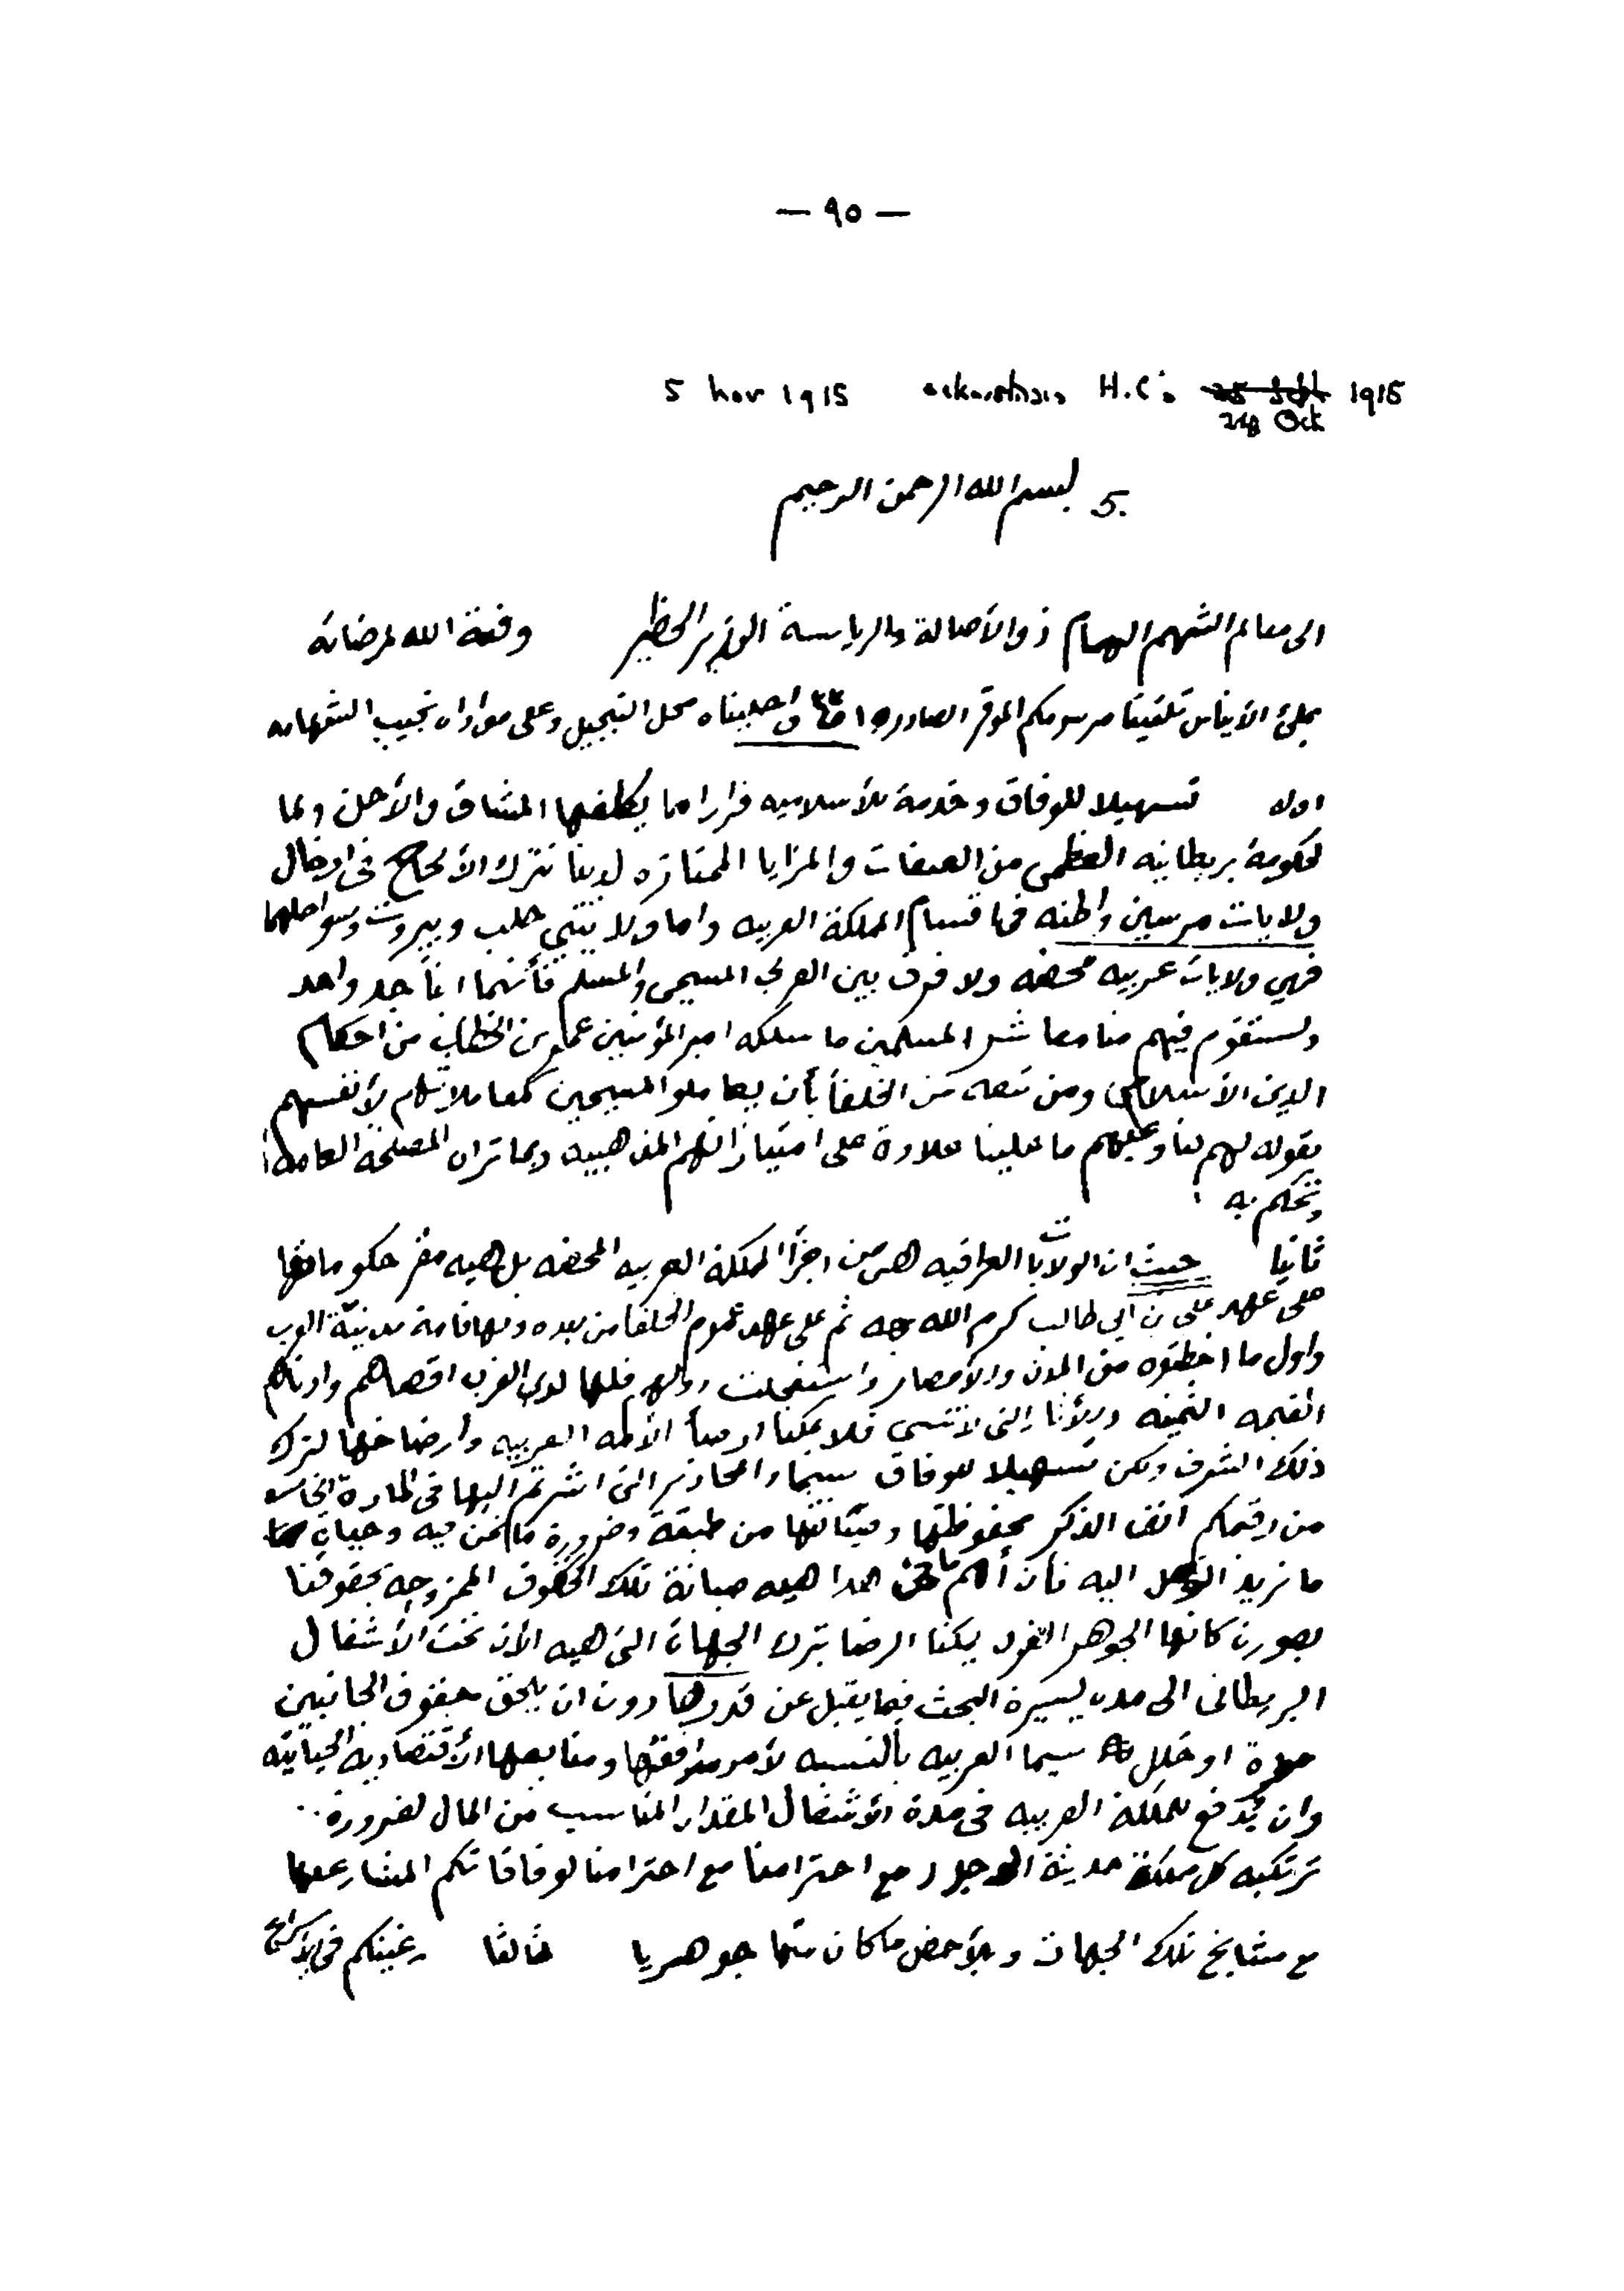 — ٩٥ —
5 Nov 1915 H.C's 25 Sept 1915
24 Oct
5. بسم الله الرحمن الرحيم
الى معالم الشهم الهمام ذو الأصالة والرياسة الوزير الخطير وفقه الله لمرضاته
بملئ الأيناس تلقينا مرسومكم الموقر الصادر واحليناه محل التبجيل وعلى مواداه نجيب الشهامه
اولا تسهيلا للوفاق وخدمة للأسلاميه فرارا مما يكلفها المشاق والأحن ولما
لحكومة بريطانيه العظمى من الصفات والمزايا الممتازه لدينا نترك الألحاح فى ادخال
ولايات مرسين واطنه فى اقسام المملكة العربيه واما ولايتي حلب وبيروت وسواحلهما
فهي ولايات عربيه محضه ولا فرق بين العربي المسيحى والمسلم فأنهما ابنا جد واحد
ولستقوم فيهم منا معاشر المسلمين ما سلكه امير المؤمنين عمر بن الخطاب من احكام
الدين الأسلامى ومن تبعه من الخلفا بأن يعاملوا المسيحين كمعاملاتهم لأنفسهم
بقوله لهم لنا وعليهم ما علينا علاوة على امتيازاتهم المذهبيه وبما تراه المصلحة العامه
وتحكم به
ثانيا حيث ان الولايات العراقيه هى من اجزأ المملكة العربيه المحضه بل هيه مقر حكوماتها
على عهد على بن ابي طالب كرم الله وجه ثم على عهد عموم الخلفا من بعده وبها قامة مدنيّة العرب
واول ما اختطوه من المدن والأمصار واستفحلت دولهم فلها لدى العرب اقصاهم وادناهم
القيمه الثمينه والتى لا تنسى فلا يمكنا ارضأ الأمه العربيه وارضاخها لترك
ذلك الشرف ولكن تسهيلا للوفاق سيما والمحاذير التى اشرتم اليها فى المادة الخامسه
من رقيمكم انف الذكر محفوظتها وصيانتها من طبيعة وضرورة ما نحن فيه
ما نريد التوصل اليه فأن أهم ما فى هذا هيه صيانة تلك الحقوق الممزوجه بحقوقنا
بصورت كانها الجوهر الفرد يمكنا الرضا بترك الجهات التى هيه الأن تحت الأشغال
البريطانى الى مده يسيرة البحث فيما يقبل عن قدرها دون ان يلحق حقوق الجانبين
مضرة او خلل سيما العربيه بالنسبه لأمر مرافقها ومنابعها الأقتصاديه الحياتيه
وان يُدفع للمملكة العربيه فى مدة الأشغال المقدار المناسب من المال لضرورة..
ترتكبه كل مملكة حديثة الوجود مع احترامنا مع احترامنا لوفاقاتكم المشار عليها
مع مشايخ تلك الجهات وبالأخص ما كان منها جوهريا ثالثا رغبتكم فى الأسراع